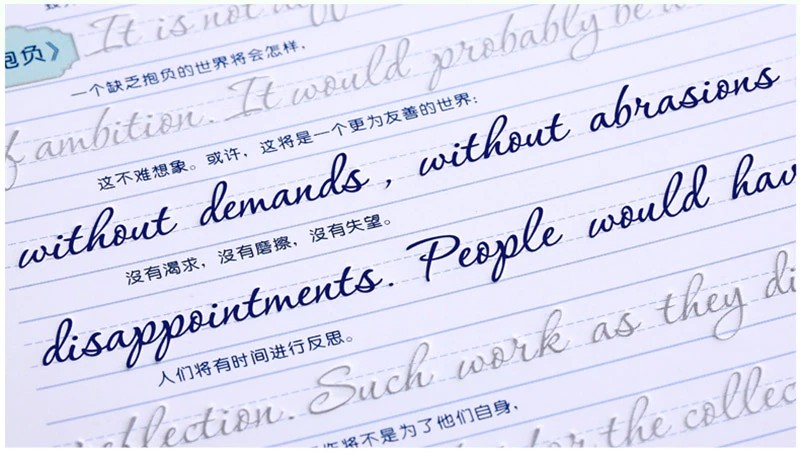 It is not
抱负》
一个缺乏抱负的世界将会怎样，
f ambition. It would probably be a
这不难想象。或许，这将是一个更为友善的世界：
without demands , without abrasions
沒有渴求，沒有磨擦，沒有失望。
disappointments. People would hav
人们将有时间进行反思。
eflection. Such work as they di
将不是为了他们自身，
for the collec